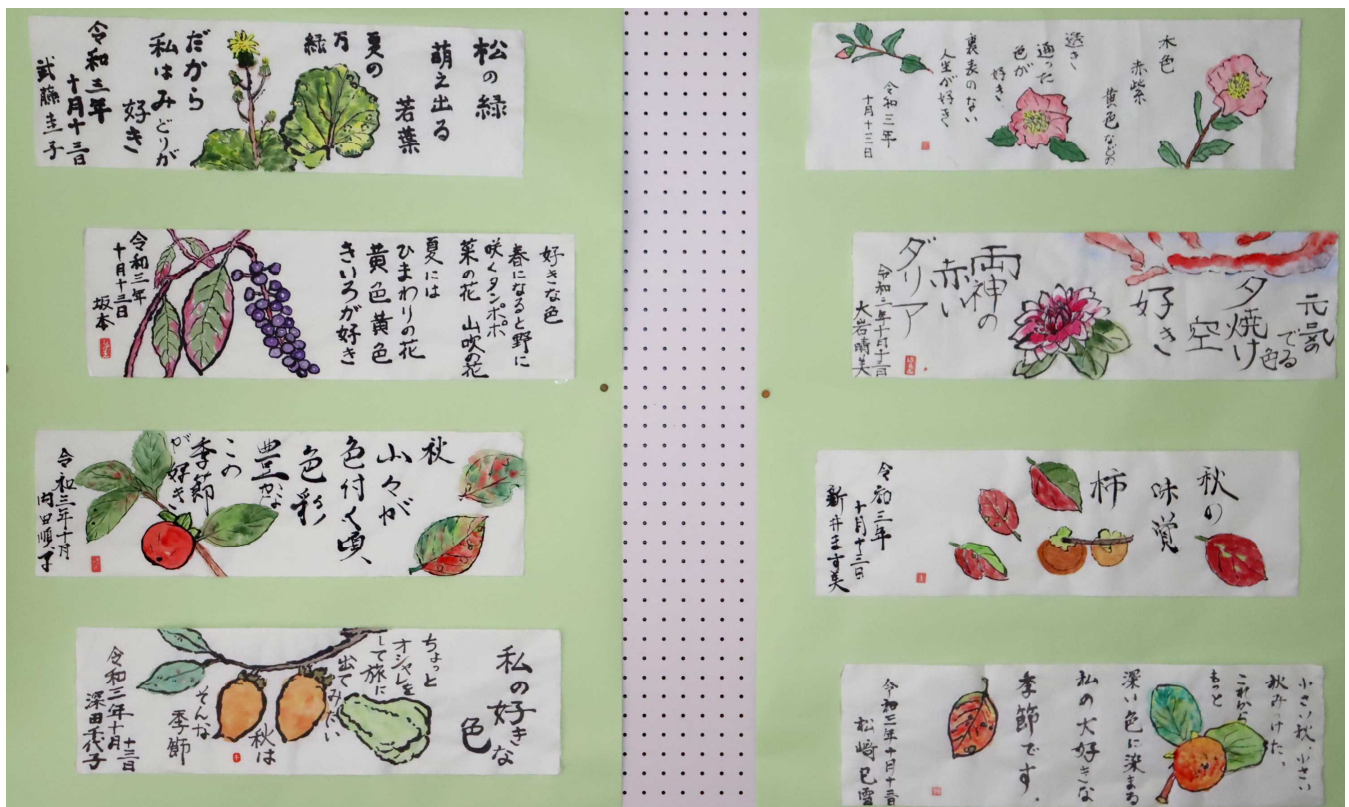 松の緑
萌え出る
若葉
夏の
万
緑
だから
私はみどりが
好き
令和三年
十月十三日
武藤圭子
好きな色
春になると野に
咲くタンポポ
菜の花 山吹の花
夏には
ひまわりの花
黄色黄色
きいろが好き
令和三年
十月十三日
坂本
秋
山々が
色付く頃
色彩
豊かな
この
季節
が好き
令和三年十月
内田順子
私の好きな
色
ちょっと
オシャレを
して旅に
出てみたい
秋は
そんな
季節
令和三年十月
十三日
深田千代子
水色
赤紫
黄色などの
透き
通った
色が
好き
裏表のない
人生が好き
令和三年
十月十三日
元気の
でる
色
夕焼け
空
好き
両神の
赤い
ダリア
令和三年十月十三日
大岩晴美
秋の
味覚
柿
令和三年
十月十三日
新井ます美
小さい秋、小さい
秋みつけた。
これから
もっと
深い色に染まる
私の大好きな
季節です。
令和三年十月十三日
松崎